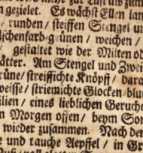 gezielet. Es wächst Ellen lan
runden / steiffen Stengel u
schenfarb-grünen / weichen /
gestaltet wie der Milten o
ätter. Am Stengel und Zwe
rüne / streiffichte Knöpff / dara
weisse / striemichte Glocken-blu
ilien / eines lieblichen Geruchs
Morgen offen / beym So
wieder zusammen. Nach der
und rauche Aepffel / in Gr